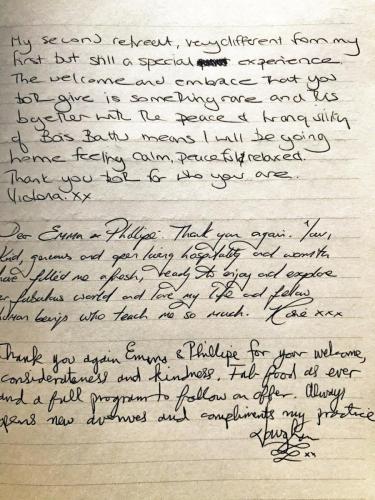 My second retreat, very different from my
first but still a special experience.
The welcome and embrace that you
both give is something rare and this
together with the peace & tranquility
of Bois Battu means I will be going
home feeling calm, peaceful & relaxed.
Thank you both for who you are.
Victoria. xx
Dear Emma & Phillipe. Thank you again. Your
kind, generous and open loving hospitality and
have filled me afresh, ready to enjoy and explore
our fabulous world and love my life and fellow
human beings who teach me so much. xxx
Thank you again Emma & Phillipe for your welcome,
considerateness and kindness. Fab food as ever
and a full program to follow on offer. Always
opens new avenues and compliments my practice
xx